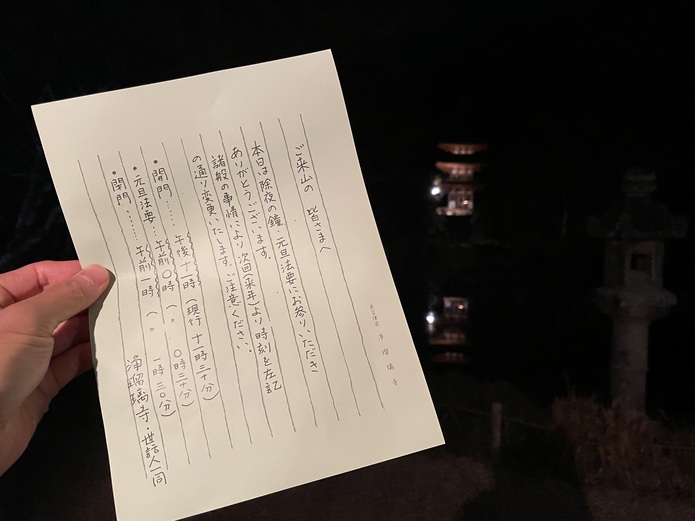 ご来山の 皆さまへ
本日は除夜の鐘、元旦法要にお参りいただき
ありがとうございます。
諸般の事情により次回(来年)より時刻を左記
の通り変更いたします。ご注意ください。
・開門…… 午後十一時(現行 十一時三十分)
・元旦法要… 午前〇時(〃 〇時三十分)
・閉門…… 午前一時(〃 一時三〇分)
浄瑠璃寺・世話人一同
浄瑠璃寺